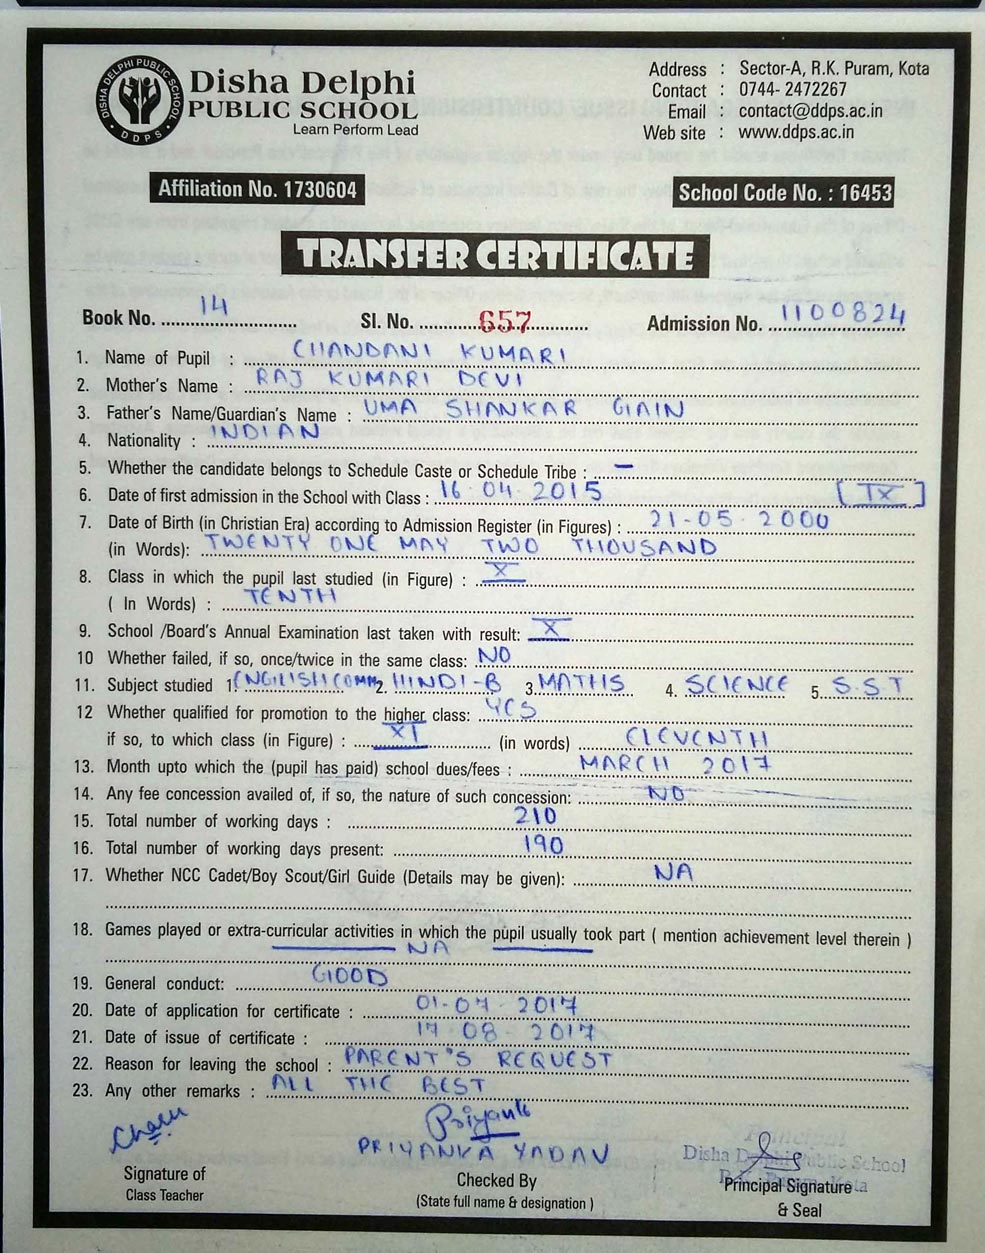 DISHA DELPHI PUBLIC SCHOOL
DDPS
Disha Delphi
PUBLIC SCHOOL
Learn Perform Lead
Address : Sector-A, R.K. Puram, Kota
Contact : 0744- 2472267
Email : contact@ddps.ac.in
Web site : www.ddps.ac.in
Affiliation No. 1730604
School Code No. : 16453
TRANSFER CERTIFICATE
Book No. 14 Sl. No. 657 Admission No. 1100824
1. Name of Pupil : CHANDANI KUMARI
2. Mother's Name : RAJ KUMARI DEVI
3. Father's Name/Guardian's Name : UMA SHANKAR GAIN
4. Nationality : INDIAN
5. Whether the candidate belongs to Schedule Caste or Schedule Tribe : –
6. Date of first admission in the School with Class : 16.04.2015 [IX]
7. Date of Birth (in Christian Era) according to Admission Register (in Figures) : 21-05-2000
(in Words): TWENTY ONE MAY TWO THOUSAND
8. Class in which the pupil last studied (in Figure) : X
( In Words) : TENTH
9. School /Board's Annual Examination last taken with result: X
10 Whether failed, if so, once/twice in the same class: NO
11. Subject studied 1. ENGLISH COMM 2. HINDI-B 3. MATHS 4. SCIENCE 5. S.S.T
12 Whether qualified for promotion to the higher class: YES
if so, to which class (in Figure) : XI (in words) ELEVENTH
13. Month upto which the (pupil has paid) school dues/fees : MARCH 2017
14. Any fee concession availed of, if so, the nature of such concession: NO
15. Total number of working days : 210
16. Total number of working days present: 190
17. Whether NCC Cadet/Boy Scout/Girl Guide (Details may be given): NA
18. Games played or extra-curricular activities in which the pupil usually took part ( mention achievement level therein )
NA
19. General conduct: GOOD
20. Date of application for certificate : 01-07-2017
21. Date of issue of certificate : 17-08-2017
22. Reason for leaving the school : PARENT'S REQUEST
23. Any other remarks : ALL THE BEST
Priyanka
PRIYANKA YADAV
Principal
Disha Delphi Public School
R.K. Puram, Kota
Signature of
Class Teacher
Checked By
(State full name & designation )
Principal Signature
& Seal